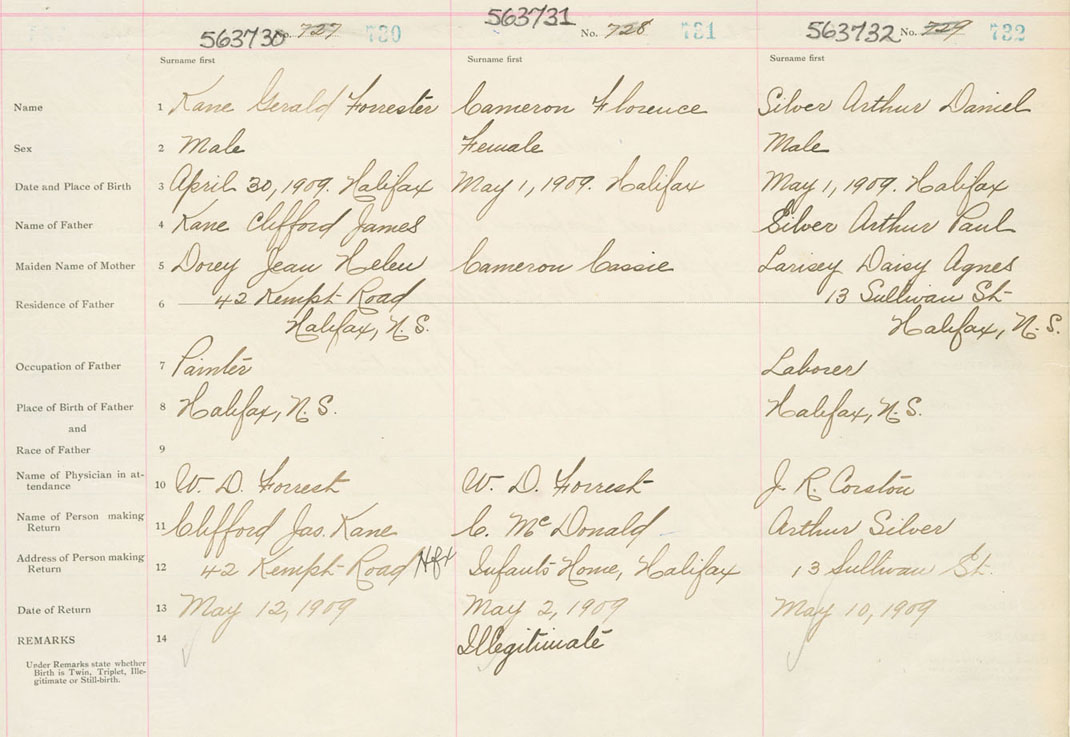 563730 No. 727 730 563731 No. 728 731 563732 No. 729 732
Surname first Surname first Surname first
Name 1 Kane Gerald Forrester Cameron Florence Silver Arthur Daniel
Sex 2 Male Female Male
Date and Place of Birth 3 April 30, 1909. Halifax May 1, 1909. Halifax May 1, 1909. Halifax
Name of Father 4 Kane Clifford James Silver Arthur Paul
Maiden Name of Mother 5 Dorey Jean Helen Cameron Cassie Larisey Daisy Agnes
Residence of Father 6 42 Kempt Road 13 Sullivan St
Halifax, N.S. Halifax, N.S.
Occupation of Father 7 Painter Laborer
Place of Birth of Father 8 Halifax, N.S. Halifax, N.S.
and
Race of Father 9
Name of Physician in at-
tendance 10 W. D. Forrest W. D. Forrest J. R. Corston
Name of Person making
Return 11 Clifford Jas. Kane C. McDonald Arthur Silver
Address of Person making
Return 12 42 Kempt Road Hfx Infants Home, Halifax 13 Sullivan St.
Date of Return 13 May 12, 1909 May 2, 1909 May 10, 1909
REMARKS 14 Illegitimate
Under Remarks state whether
Birth is Twin, Triplet, Ille-
gitimate or Still-birth.